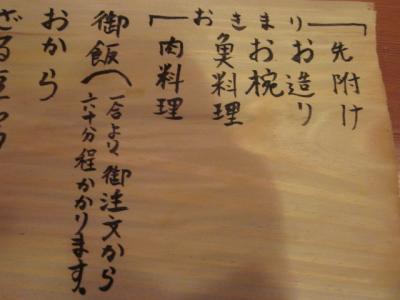 おきまり
先附け
お造り
お椀
魚料理
肉料理
御飯(一合より御注文から
六十分程かかります。
おから